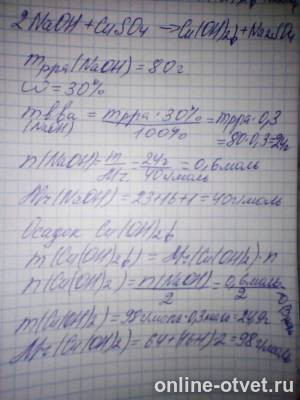 2NaOH + CuSO4 → Cu(OH)2↓ + Na2SO4
mр-ра (NaOH) = 80г
ω = 30%
mв-ва (NaOH) = mр-ра · 30% / 100% = mр-ра · 0,3
= 80 · 0,3 = 24г
n(NaOH) = m/Mr = 24г / 40г/моль = 0,6 моль
Mr(NaOH) = 23+16+1 = 40г/моль
Осадок Cu(OH)2↓
m(Cu(OH)2↓) = Mr(Cu(OH)2) · n
n(Cu(OH)2) = n(NaOH)/2 = 0,6моль/2 = 0,3моль
m(Cu(OH)2) = 98г/моль · 0,3моль = 29,4г
Mr(Cu(OH)2) = 64+(16+1)·2 = 98г/моль
online-otvet.ru